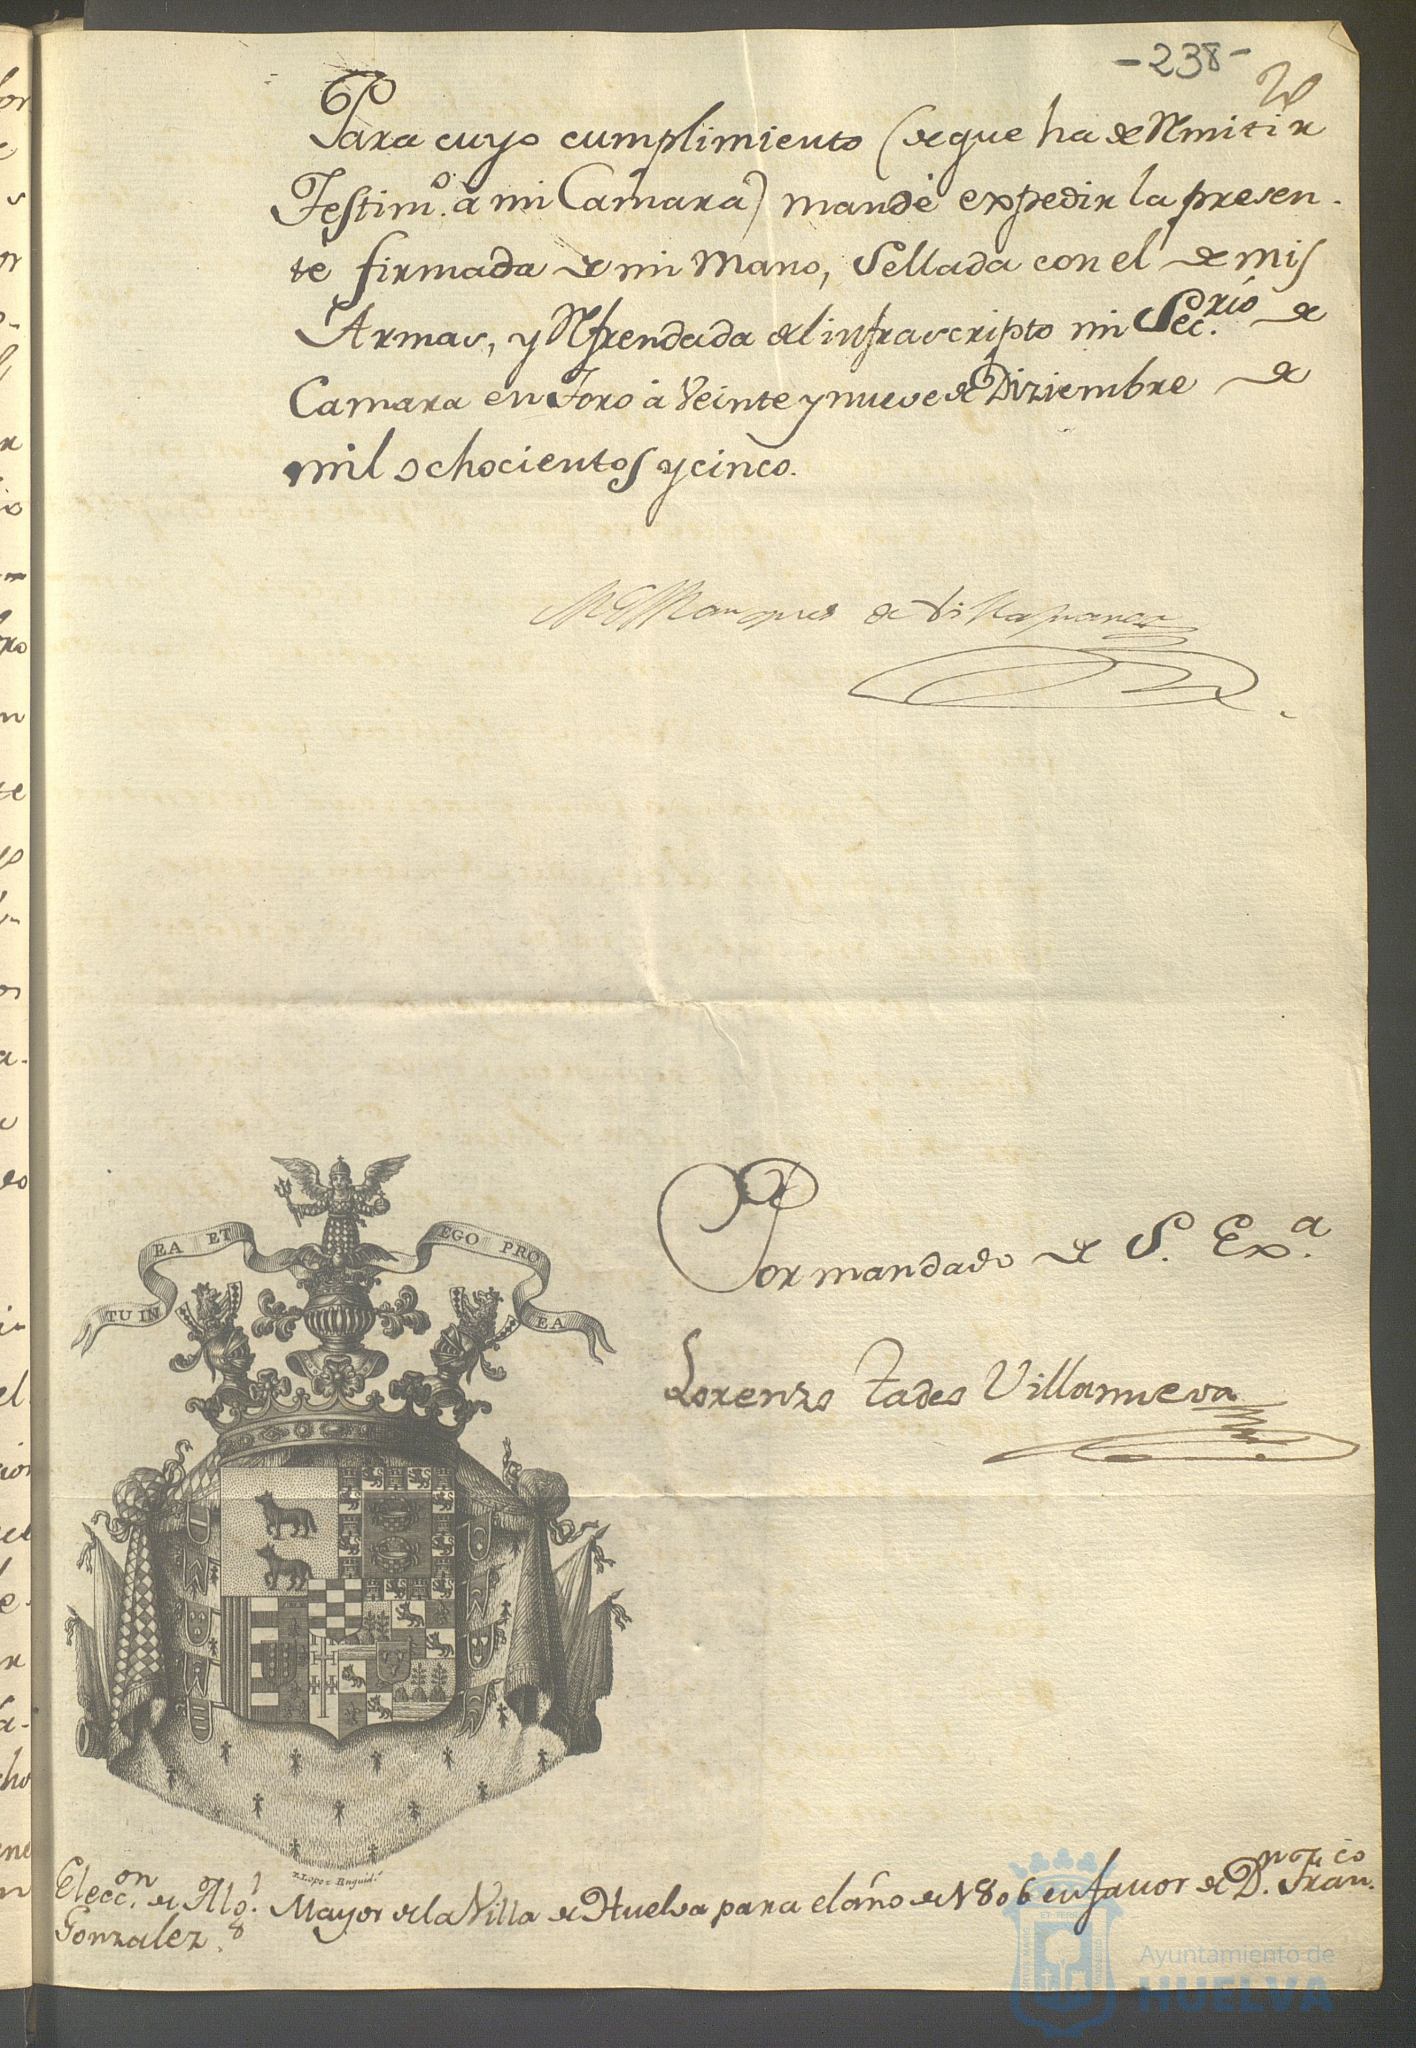 -238-
Para cuyo cumplimiento (de que ha de Rmitir
Testim.º à mi Camara) mandè expedir la presen-
te firmada de mi Mano, Sellada con el de mis
Armas, y Rfrendada del infrascripto mi Sec.rio de
Camara en Toro à Veinte y nueve de Diziembre de
mil ochocientos y cinco.
El Marques de Villafranca
Por mandado de S. Ex.ª
Lorenzo Tadeo Villanueva
TU IN EA ET EGO PRO EA
Elecc.on de Alg.l Mayor de la Villa de Huelva para el año de 1806 en favor de D.n Fran.co
Gonzalez.
Ayuntamiento de
HUELVA